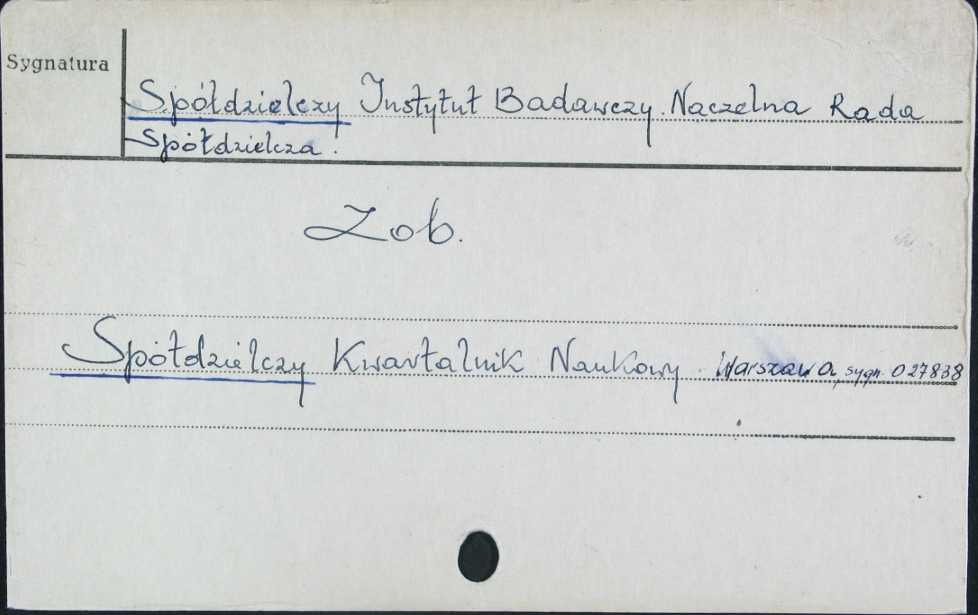 Sygnatura
Spółdzielczy Instytut Badawczy. Naczelna Rada
Spółdzielcza.
Zob.
Spółdzielczy Kwartalnik Naukowy. Warszawa, sygn. 027838